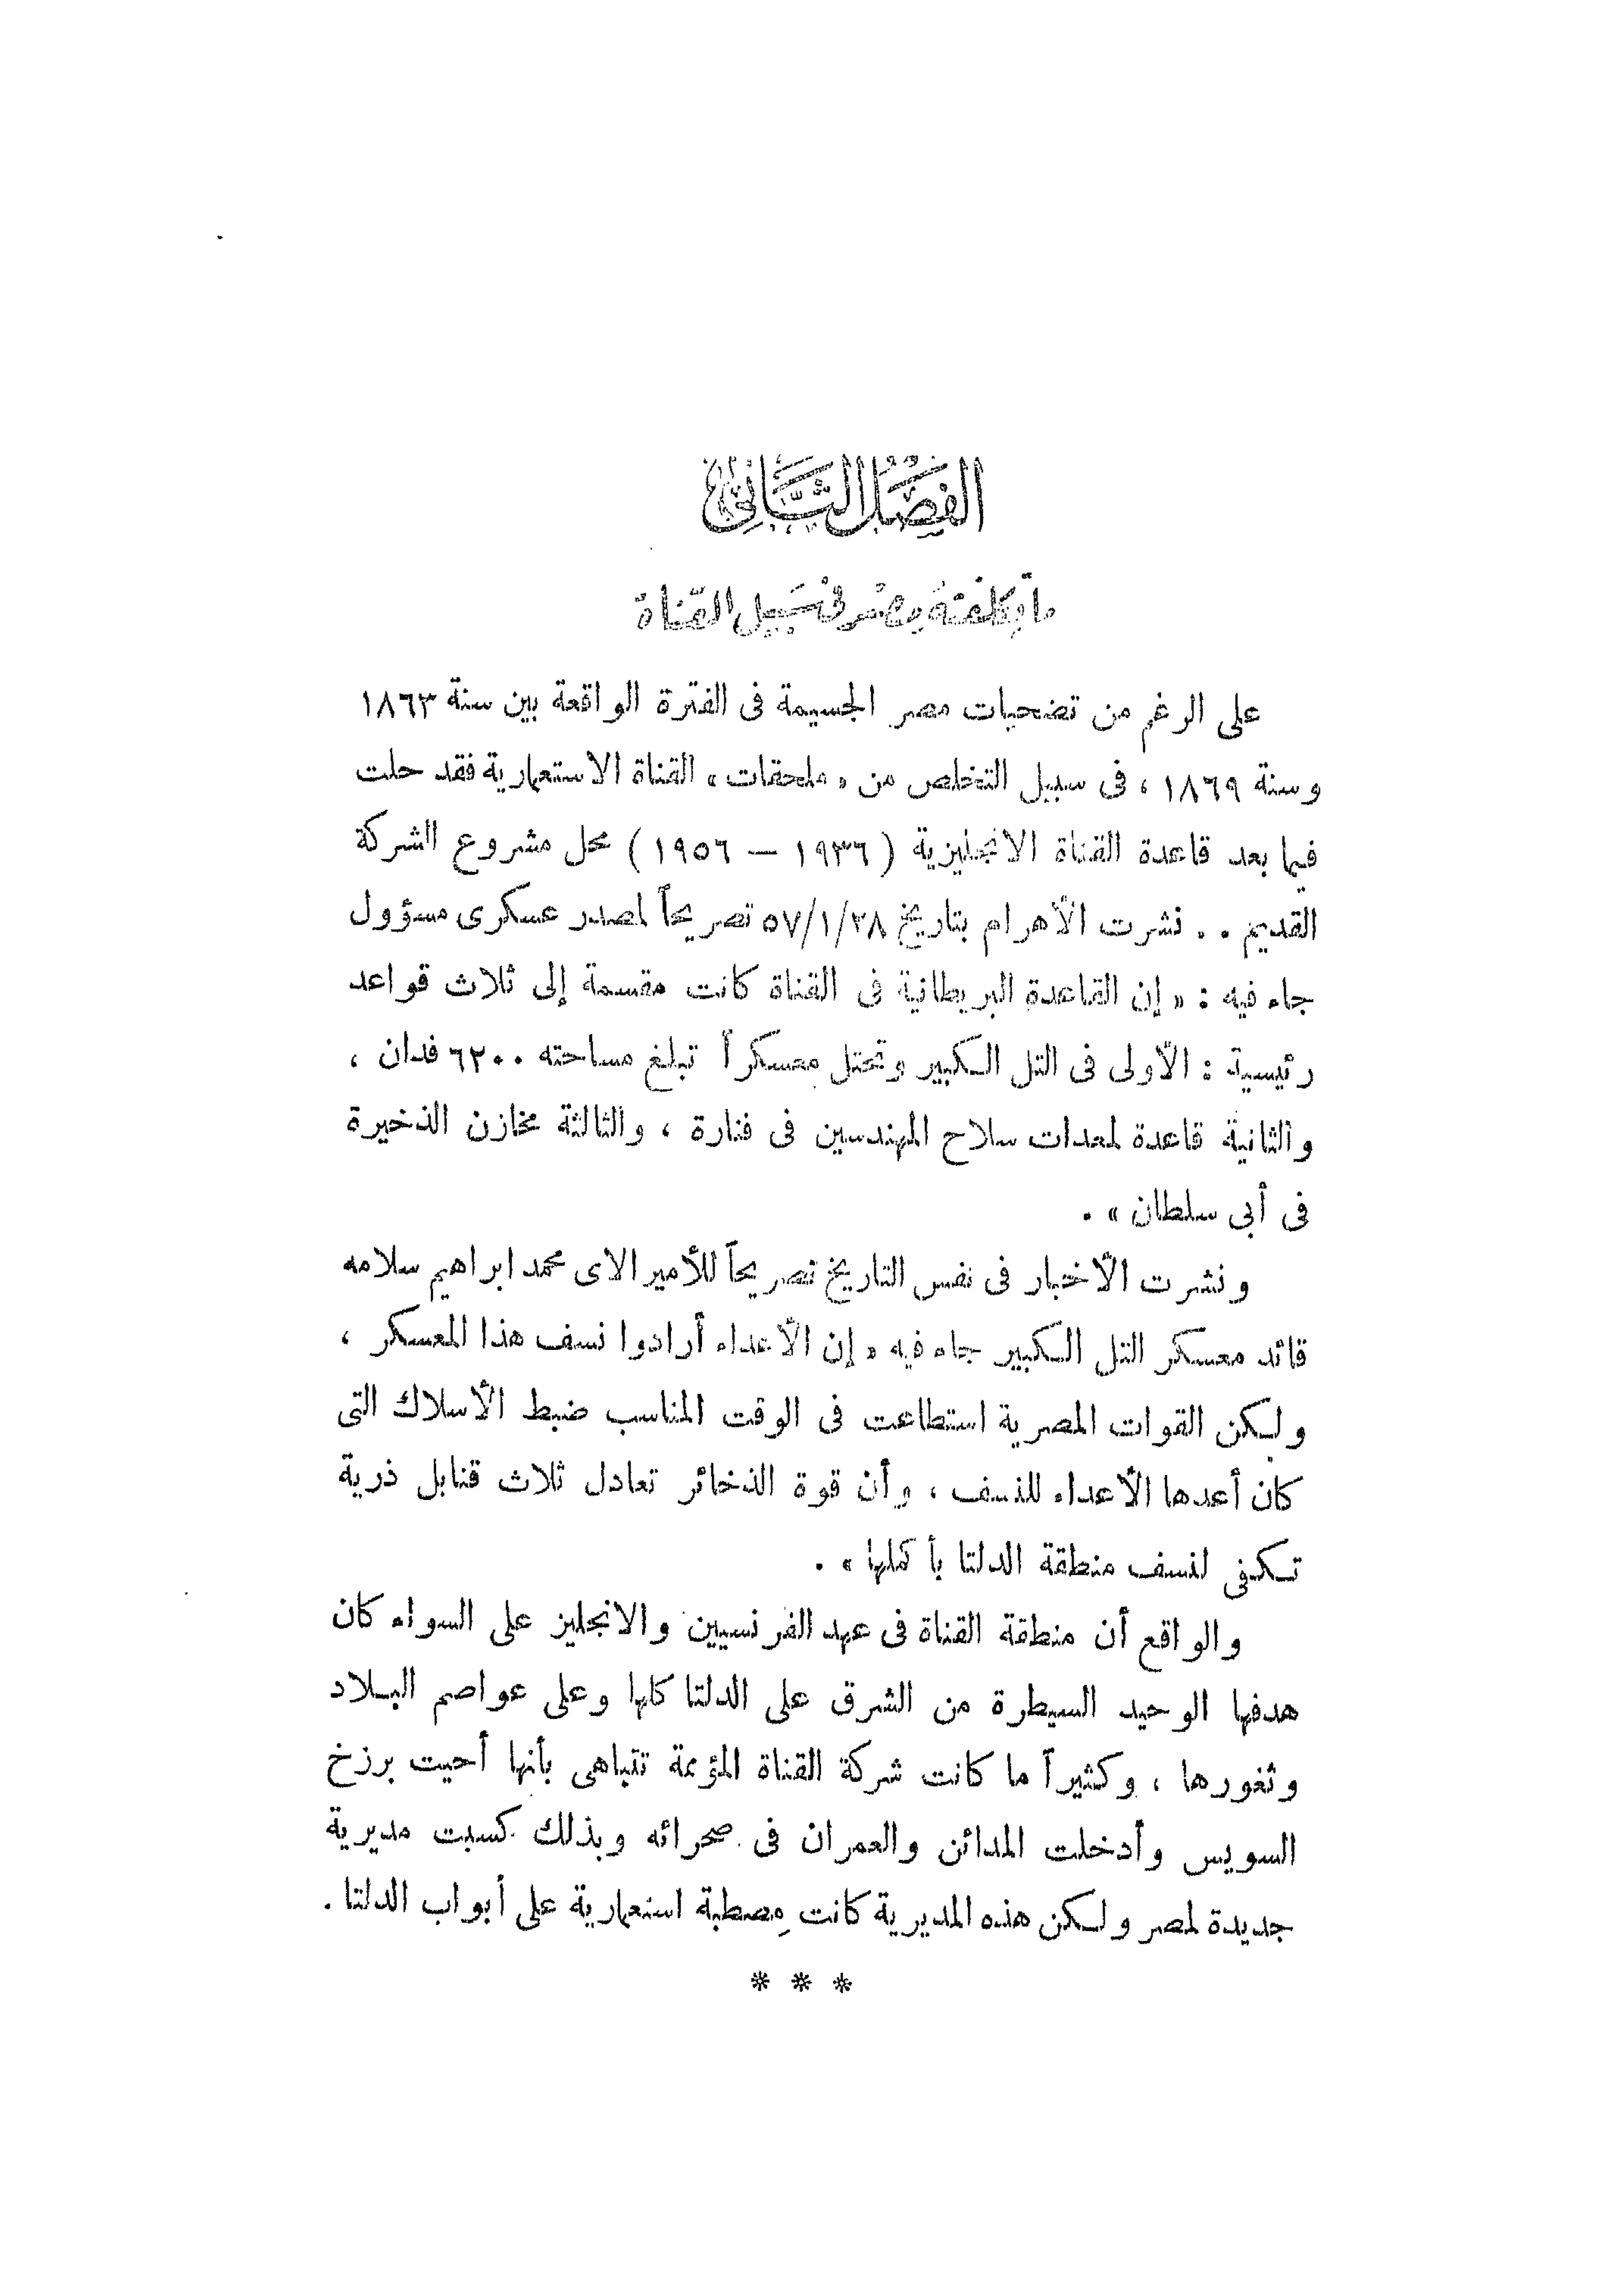 الفصل الثاني
ما تكلفته مصر في سبيل القناة
على الرغم من تضحيات مصر الجسيمة فى الفترة الواقعة بين سنة ١٨٦٣
وسنة ١٨٦٩ ، فى سبيل التخلص من « ملحقات » القناة الاستعمارية فقد حلت
فيما بعد قاعدة القناة الانجليزية ( ١٩٣٦ — ١٩٥٦ ) محل مشروع الشركة
القديم . . نشرت الأهرام بتاريخ ٥٧/١/٢٨ تصريحاً لمصدر عسكرى مسؤول
جاء فيه : « إن القاعدة البريطانية فى القناة كانت مقسمة إلى ثلاث قواعد
رئيسية : الأولى فى التل الكبير وتحتل معسكراً تبلغ مساحته ٦٢٠٠ فدان ،
والثانية قاعدة لمعدات سلاح المهندسين فى فنارة ، والثالثة مخازن الذخيرة
فى أبى سلطان » .
ونشرت الأخبار فى نفس التاريخ تصريحاً للأميرالاى محمد ابراهيم سلامه
قائد معسكر التل الكبير جاء فيه « إن الأعداء أرادوا نسف هذا المعسكر ،
ولكن القوات المصرية استطاعت فى الوقت المناسب ضبط الأسلاك التى
كان أعدها الأعداء للنسف ، وأن قوة الذخائر تعادل ثلاث قنابل ذرية
تكفى لنسف منطقة الدلتا بأكملها » .
والواقع أن منطقة القناة فى عهد الفرنسيين والانجليز على السواء كان
هدفها الوحيد السيطرة من الشرق على الدلتا كلها وعلى عواصم البلاد
وثغورها ، وكثيراً ما كانت شركة القناة المؤممة تتباهى بأنها أحيت برزخ
السويس وأدخلت المدائن والعمران فى صحرائه وبذلك كسبت مديرية
جديدة لمصر ولكن هذه المديرية كانت مصطبة استعمارية على أبواب الدلتا .
* * *